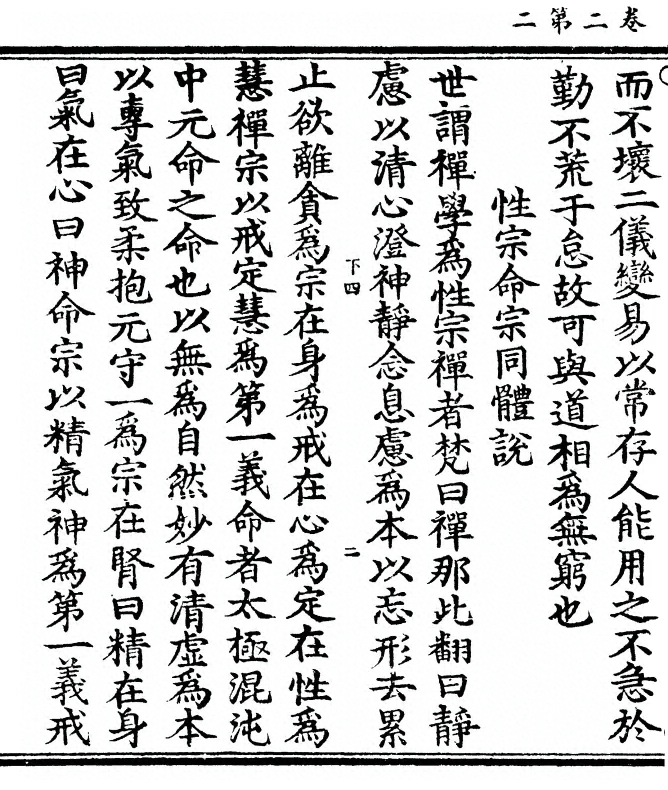 卷二第二
而不壞二儀變易以常存人能用之不急於
勤不荒于怠故可與道相爲無窮也
性宗命宗同體說
世謂禪學爲性宗禪者梵曰禪那此翻曰靜
慮以清心澄神靜念息慮爲本以忘形去累
下四
二
止欲離貪爲宗在身爲戒在心爲定在性爲
慧禪宗以戒定慧爲第一義命者太極混沌
中元命之命也以無爲自然妙有清虛爲本
以專氣致柔抱元守一爲宗在腎曰精在身
曰氣在心曰神命宗以精氣神爲第一義戒